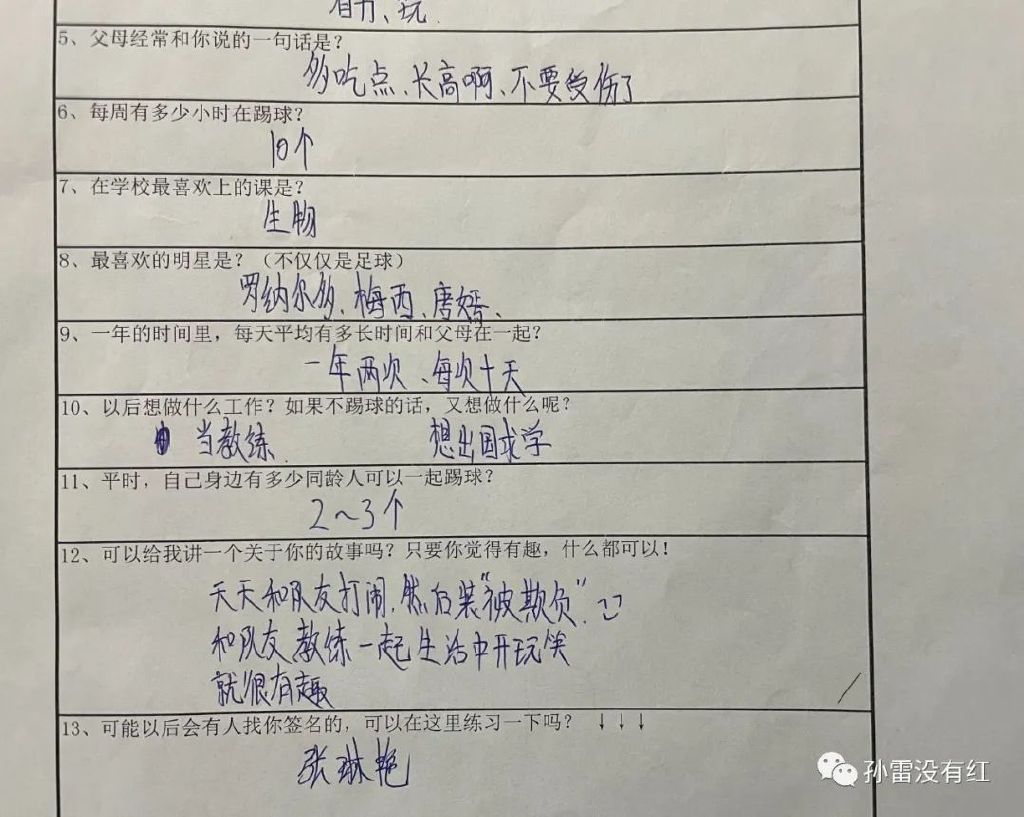 有力、玩
5、父母经常和你说的一句话是？
多吃点、长高啊、不要受伤了
6、每周有多少小时在踢球？
10个
7、在学校最喜欢上的课是？
生物
8、最喜欢的明星是？（不仅仅是足球）
罗纳尔多、梅西、唐嫣、
9、一年的时间里，每天平均有多长时间和父母在一起？
一年两次、每次十天
10、以后想做什么工作？如果不踢球的话，又想做什么呢？
当教练 想出国求学
11、平时，自己身边有多少同龄人可以一起踢球？
2～3个
12、可以给我讲一个关于你的故事吗？只要你觉得有趣，什么都可以！
天天和队友打闹，然后装“被欺负”.
和队友教练一起生活中开玩笑
就很有趣
13、可能以后会有人找你签名的，可以在这里练习一下吗？ ↓↓↓
张琳艳
孙雷没有红